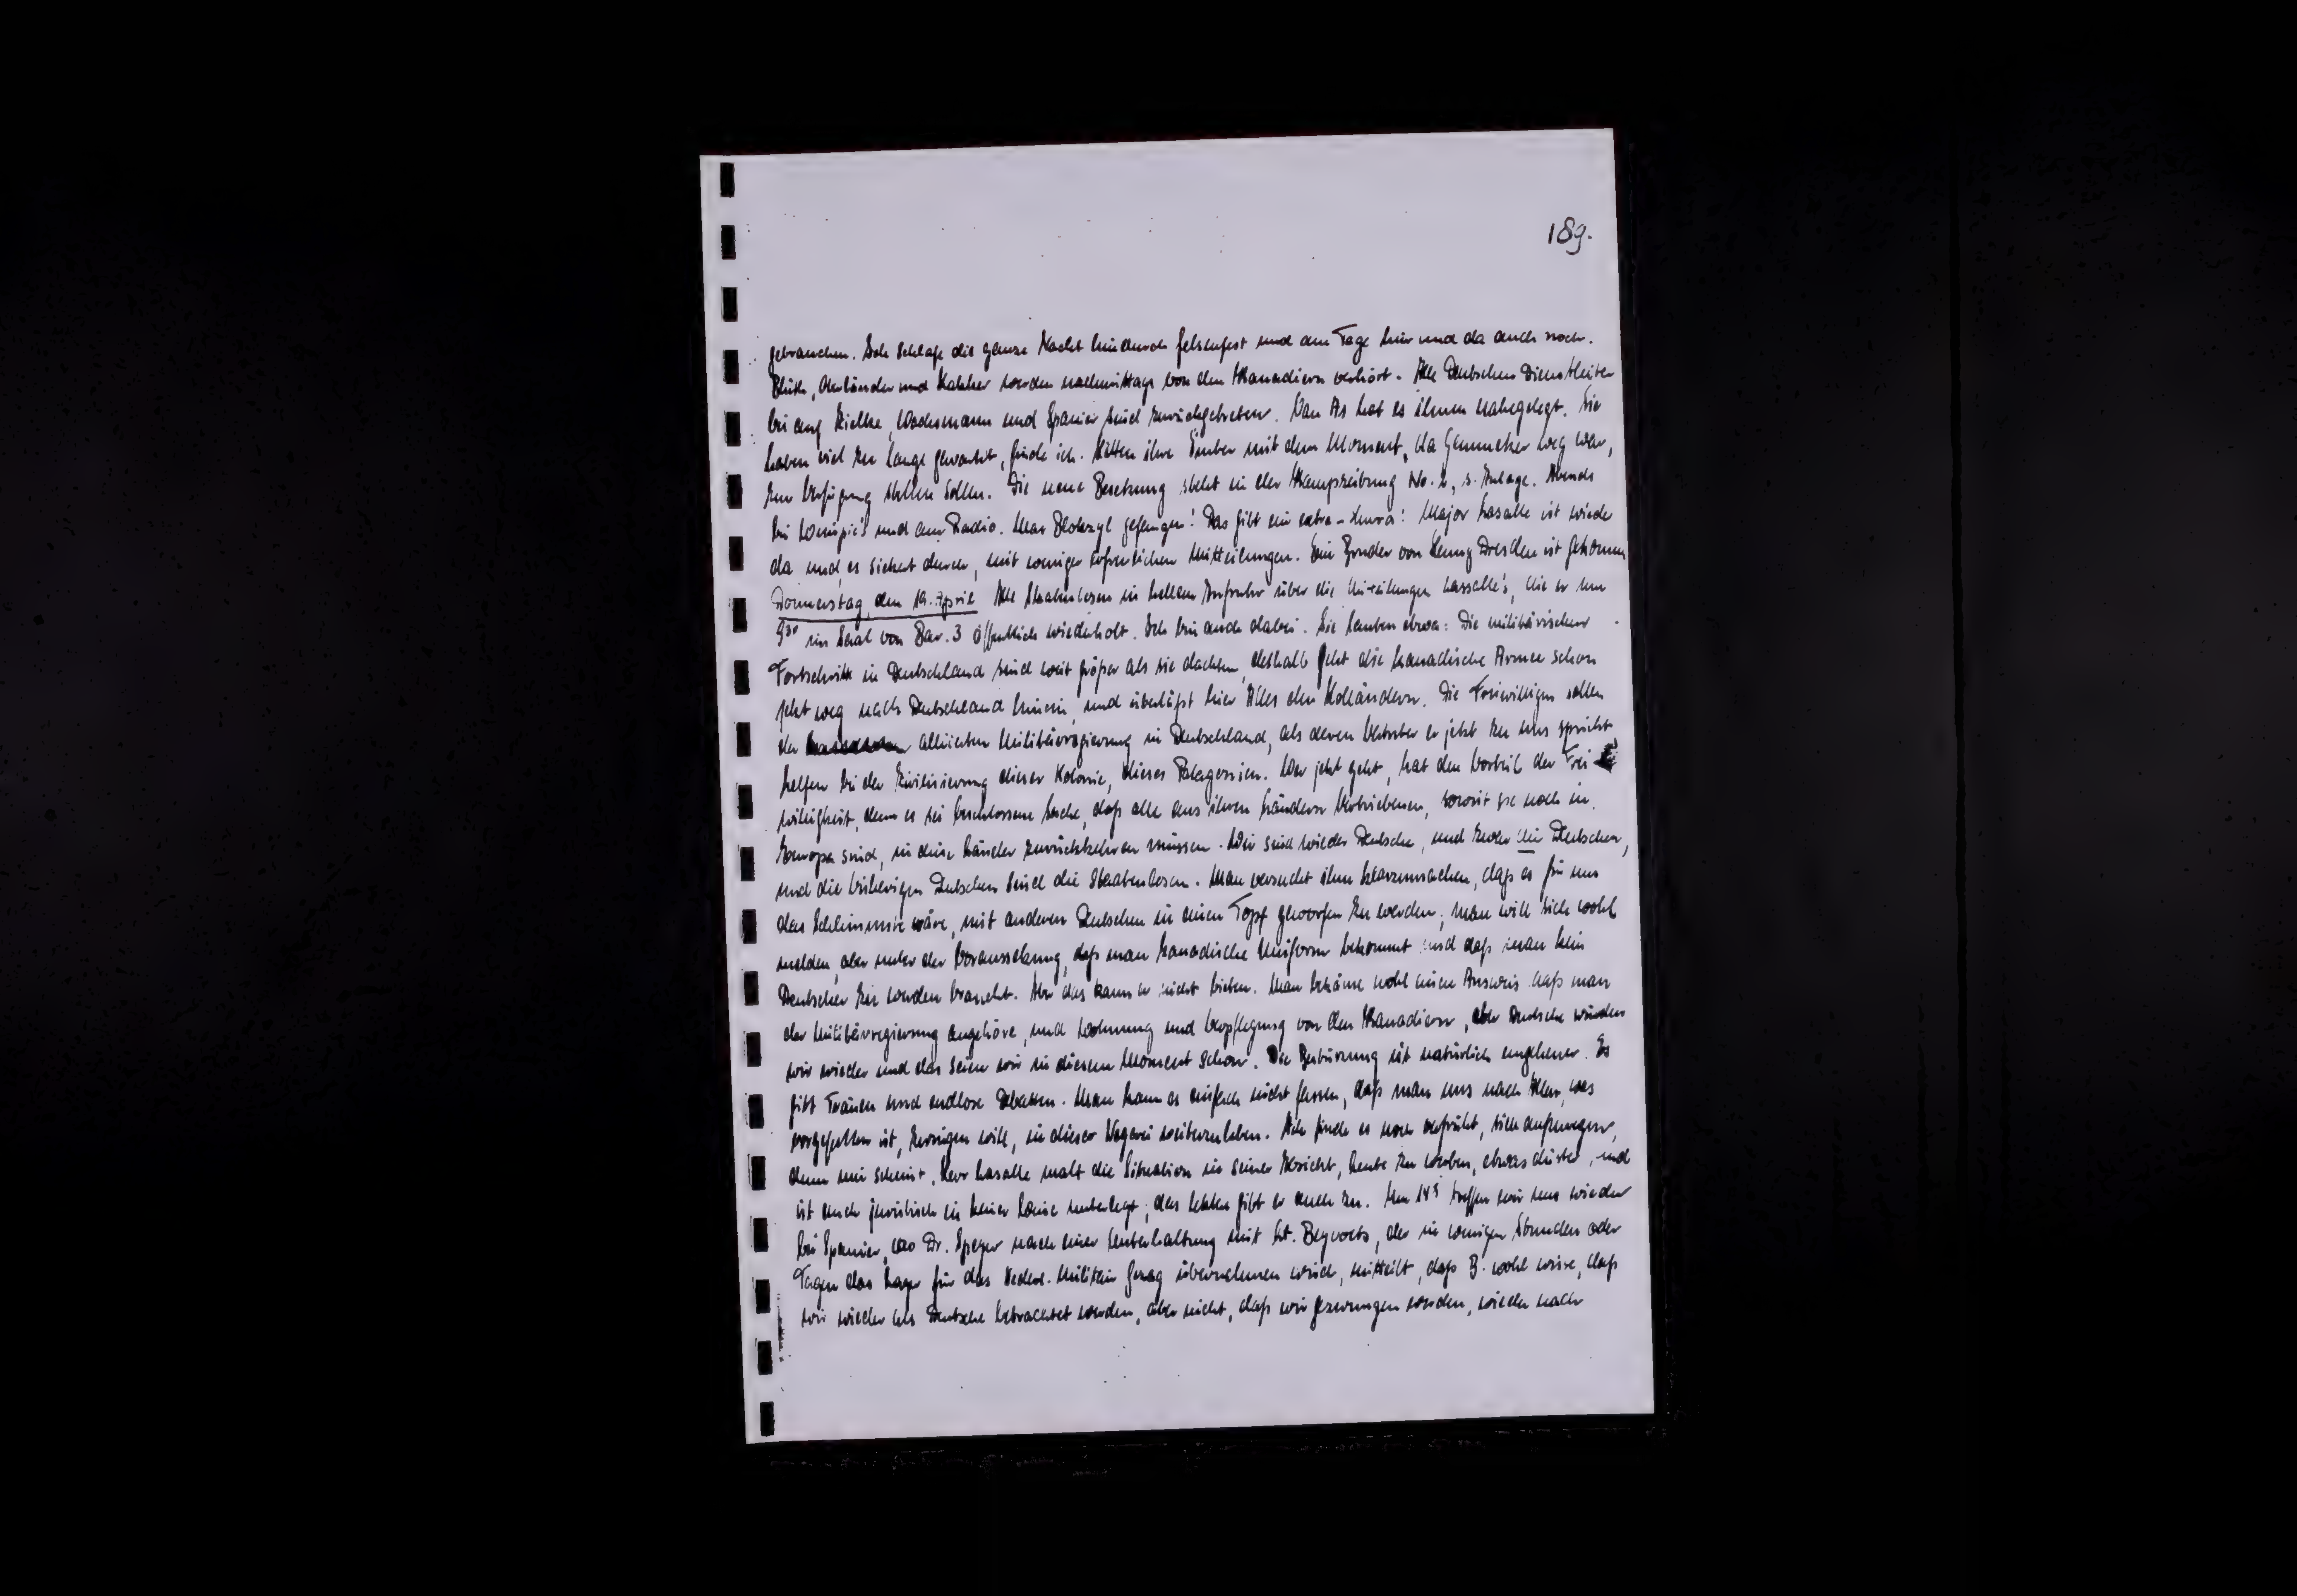 189.
gebrauchen. Ich schlafe die ganze Nacht hindurch felsenfest und am Tage hier und da auch noch.
Blüth, Oberländer und Kalcher werden nachmittags von den Kanadiern verhört. Alle Deutschen Dienstleiter
bis auf Wachsmann und Spanier sind zurückgetreten. Van As hat es ihnen nahegelegt. Sie
haben viel zu lange gewartet, finde ich. Hätten ihre Ämber mit dem Moment, da Gemmeker weg war,
zur Verfügung stellen sollen. Die neue Besetzung steht in der Kampzeitung No. 2, s. Anlage. Abends
bei und am Radio. Max Blokzyl gefangen! Das gibt ein extra-Hurra! Major Lasalle ist wieder
da und, es sickert durch, mit weniger erfreulichen Mitteilungen. Ein Bruder von Dresden ist gekommen
Donnerstag, den 19. April Alle Staatenlosen in hellem Aufruhr über die Mitteilungen Lassalle's, die er um
9³⁰ im Saal von Bar. 3 öffentlich wiederholt. Ich bin auch dabei. Sie lauten etwa: Die militärischen
Fortschritte in Deutschland sind weit größer als sie dachten, deshalb geht die kanadische Armee schon
jetzt weg nach Deutschland hinein, und überläßt hier Alles den Holländern. Die Freiwilligen sollen
der alliierten Militärregierung in Deutschland, als deren Vertreter er jetzt zu uns spricht,
helfen bei der Zivilisierung dieser Kolonie, dieses Patagonien. Wer jetzt geht, hat den Vorteil der Frei-
willigkeit, denn es sei beschlossene Sache, daß alle aus ihren Ländern Vertriebenen, soweit sie noch in
Europa sind, in diese Länder zurückkehren müssen. Wir sind wieder Deutsche, und zwar die Deutschen,
und die bisherigen Deutschen sind die Staatenlosen. Man versucht ihm klarzumachen, daß es für uns
das Schlimmste wäre, mit anderen Deutschen in einen Topf geworfen zu werden; man will sich wohl
melden, aber unter der Voraussetzung, daß man kanadische Uniform bekommt und daß man kein
Deutscher zu werden braucht. Aber das kann er nicht bieten. Man bekäme wohl einen Ausweis daß man
der Militärregierung angehöre, und Wohnung und Verpflegung von den Kanadiern, aber Deutsche würden
wir wieder und das seien wir in diesem Moment schon. Die Bestürzung ist natürlich ungeheuer. Es
gibt Tränen und endlose Debatten. Man kann es einfach nicht fassen, daß man uns nach Allem, was
vorgefallen ist, zwingen will, in dieser weiterzuleben. Ich finde es noch verfrüht, sich aufzuregen,
denn mir scheint, Herr Lasalle malt die Situation in seiner Absicht, Leute zu werben, etwas düster, und
ist auch juristisch in keiner Weise unterlegt; das letztere gibt er auch zu. Um 14⁵ treffen wir uns wieder
bei Spanier, wo Dr. Speyer nach einer Unterhaltung mit Lt. Beyvoets, der in wenigen Stunden oder
Tagen das Lager für das Nederl. Militair Gezag übernehmen wird, mitteilt, daß B. wohl wisse, daß
wir wieder als Deutsche betrachtet werden, aber nicht, daß wir gezwungen werden, wieder nach